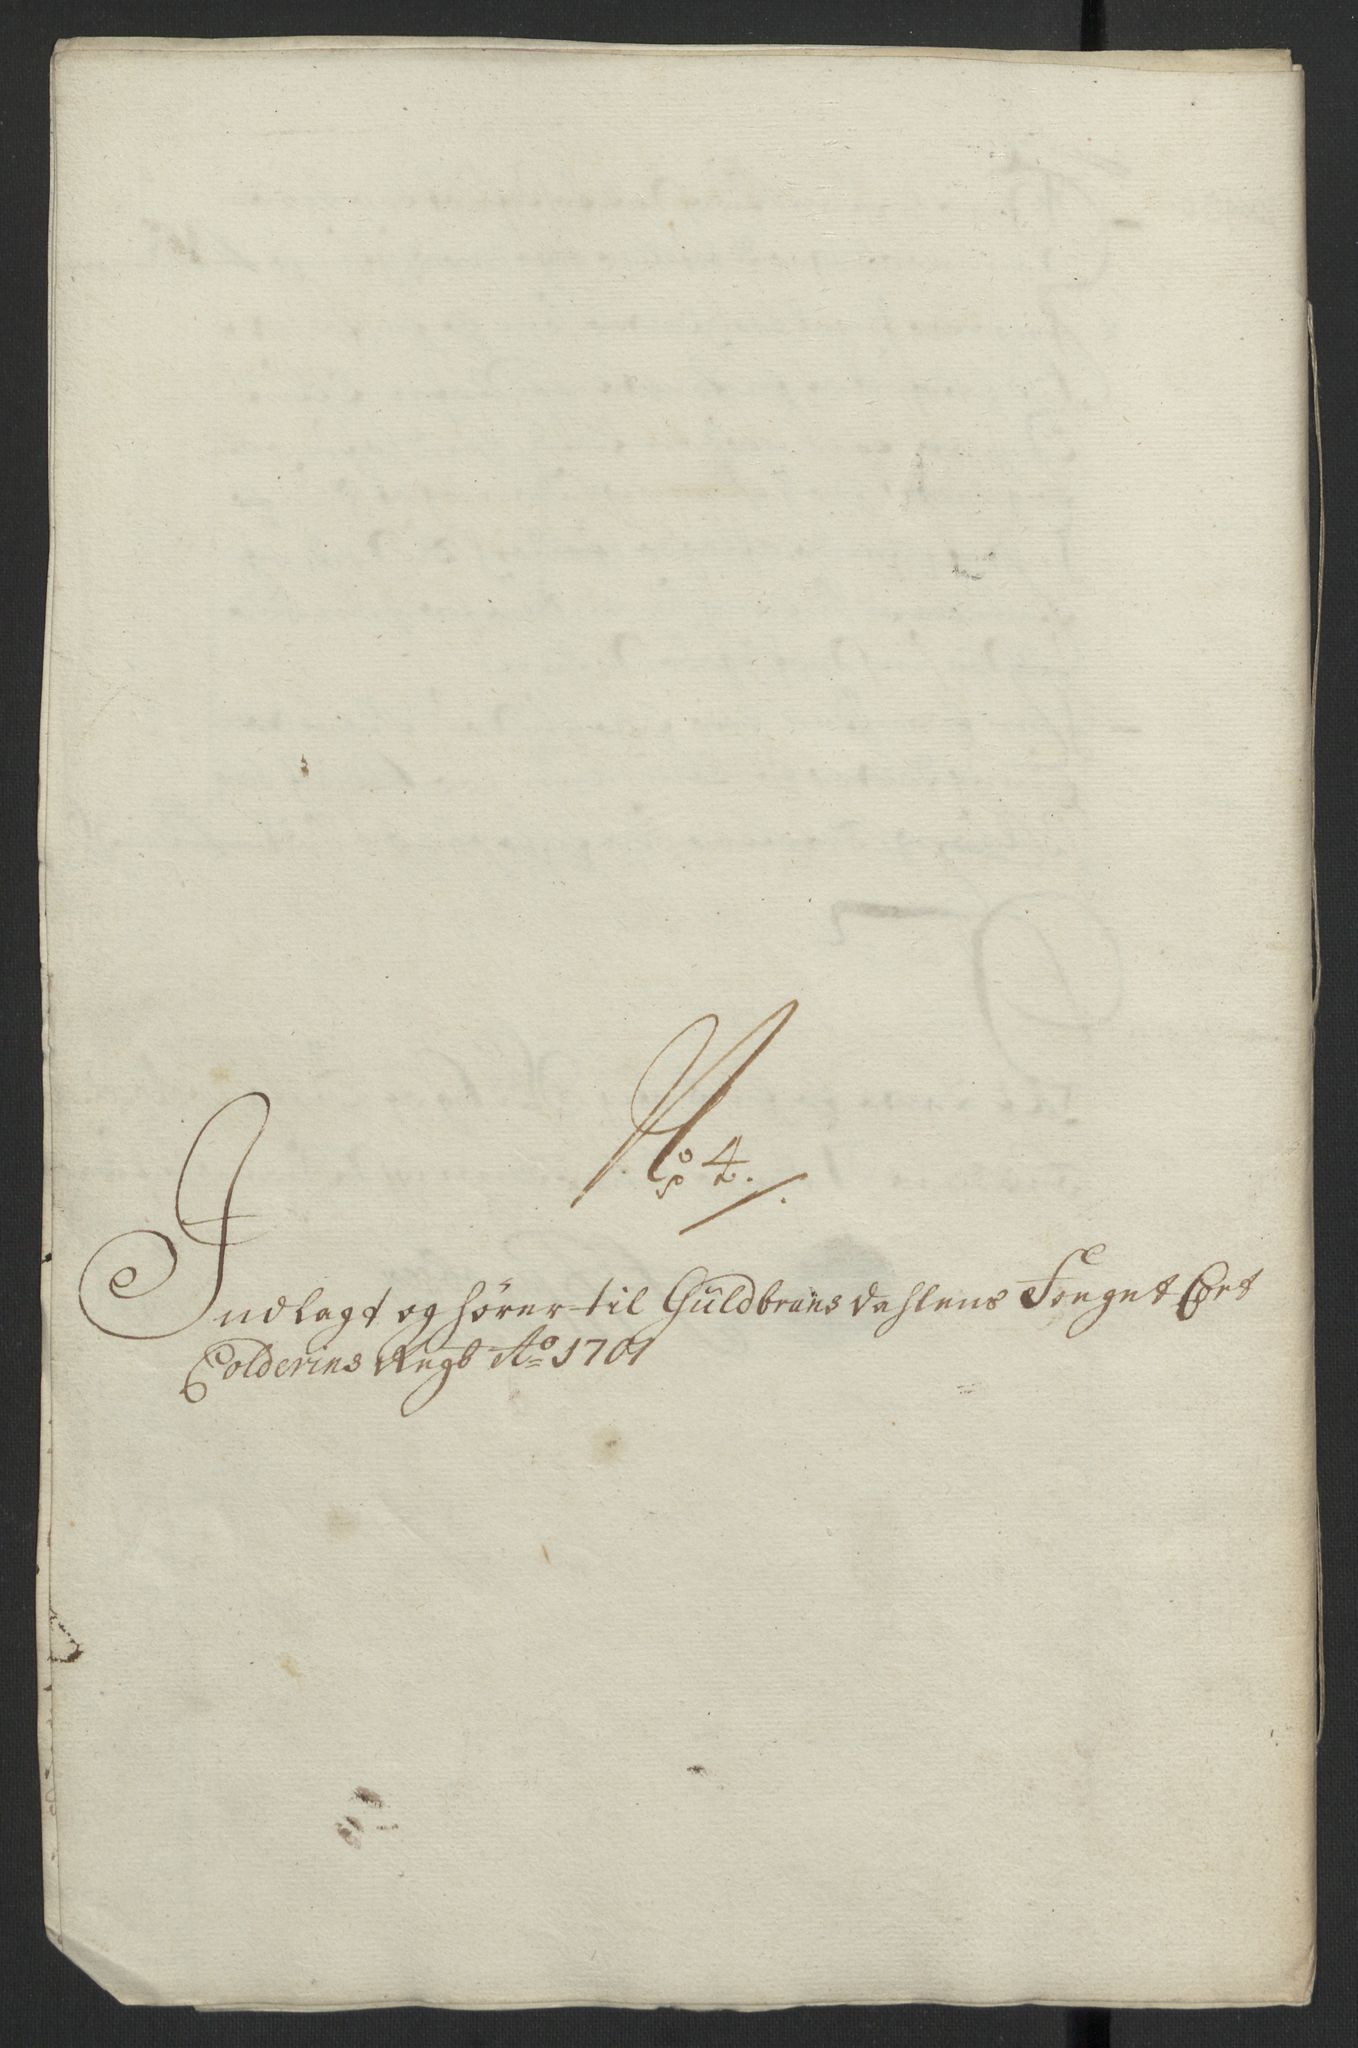 No 4.
Indlagt og hører til Guldbransdahlens Fougnt Cort
Colderins Rngb Ao 1701